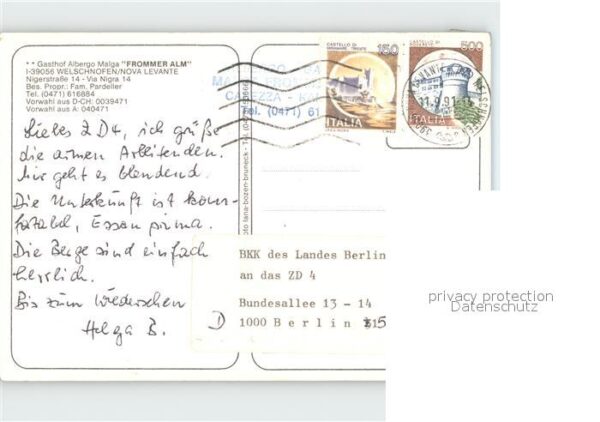 * * Gasthof Albergo Malga "FROMMER ALM"
I-39056 WELSCHNOFEN/NOVA LEVANTE
Nigerstraße 14 - Via Nigra 14
Bes. Propr.: Fam. Pardeller
Tel. (0471) 616884
Vorwahl aus D-CH: 0039471
Vorwahl aus A: 040471
Lieber ZD4, ich grüße
die armen Arbeitenden.
Mir geht es blendend.
Die Unterkunft ist kom-
fortabel, Essen prima.
Die Berge sind einfach
herrlich.
Bis zum Wiedersehen
Helga B.
foto tana-bozen-bruneck - Tel.
Tel. (0471) 61
CASTELLO DI
MIRAMARE TRIESTE
150
ITALIA
CASTELLO DI
ROVERETO
500
ITALIA
BKK des Landes Berlin
an das ZD 4
Bundesallee 13 - 14
D 1000 Berlin 15
privacy protection
Datenschutz